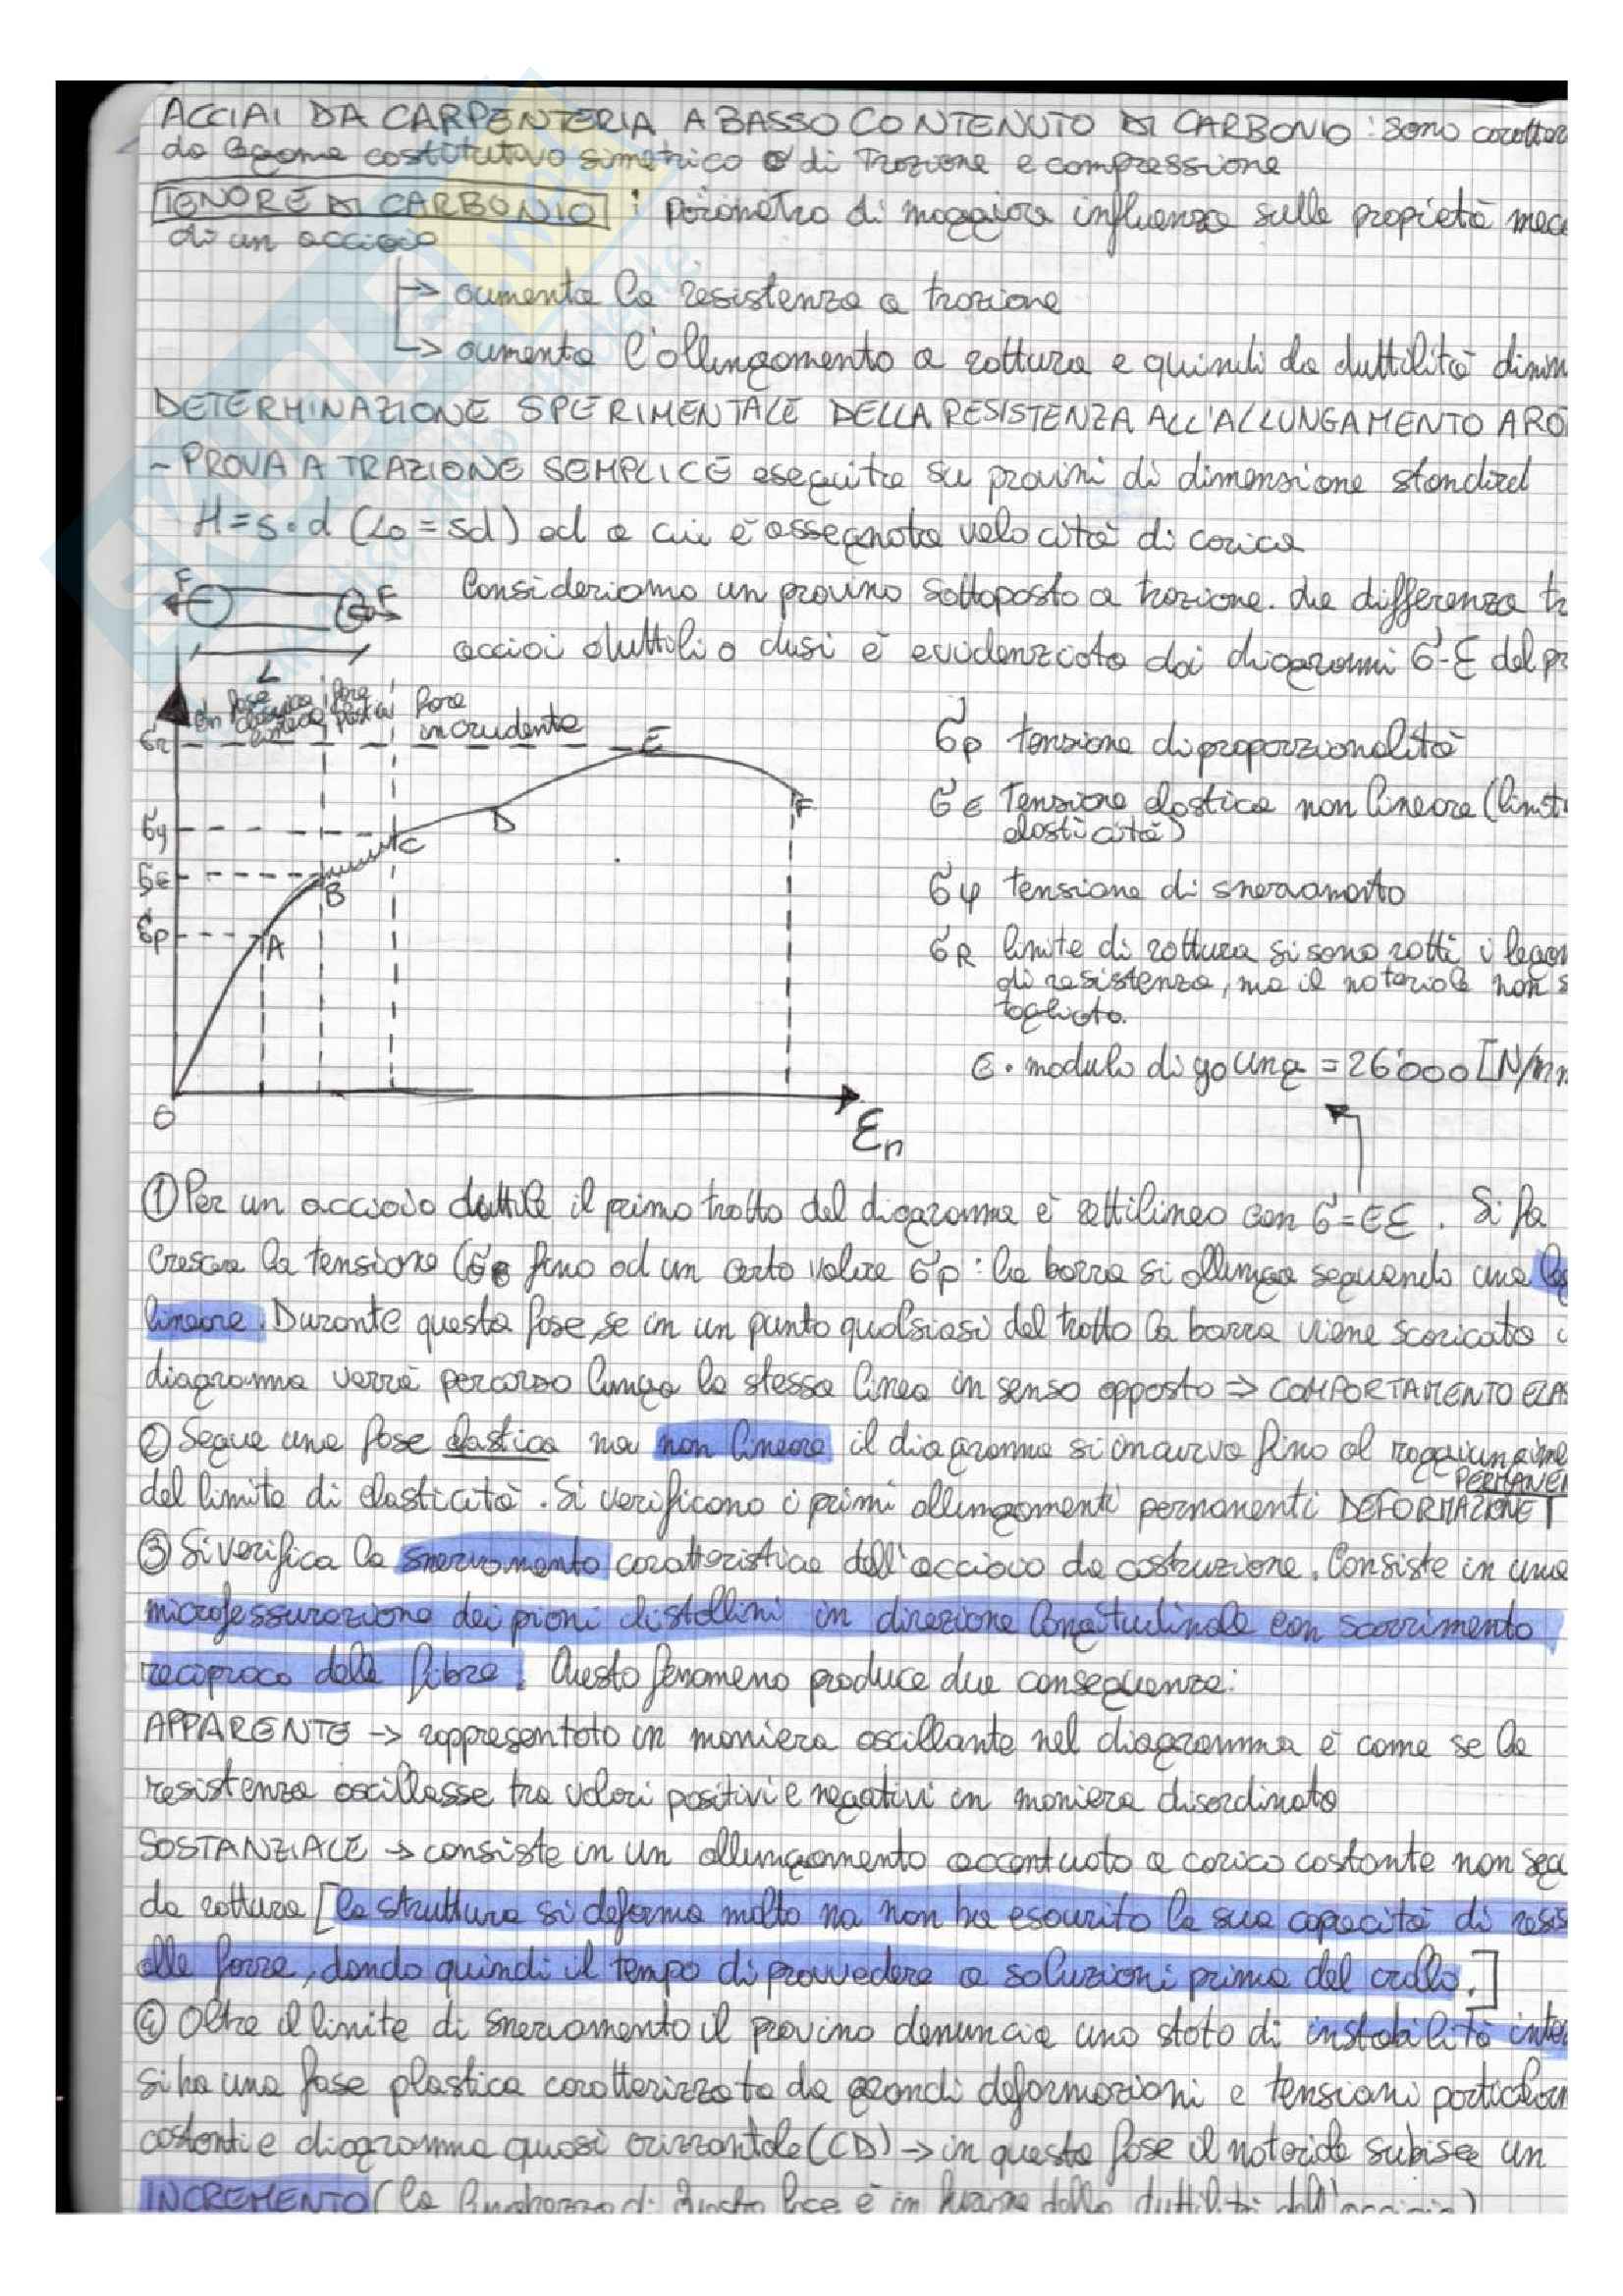 ACCIAI DA CARPENTERIA A BASSO CONTENUTO DI CARBONIO: sono caratter
da legame costitutivo simetrico di Trazione e compressione
TENORE DI CARBONIO : parametro di maggiore influenza sulle propietà mecc
di un acciaio
→ aumenta la resistenza a trazione
→ aumenta l'allungamento a rottura e quindi la duttilità dimin
DETERMINAZIONE SPERIMENTALE DELLA RESISTENZA ALL'ALLUNGAMENTO A RO
- PROVA A TRAZIONE SEMPLICE eseguita su provini di dimensione standard
H=5•d (L0=5d) ad a cui è assegnata velocità di carica
F F Consideriamo un provino sottoposto a trazione. La differenza tr
acciai duttili o dusi è evidenziata dai diagrammi σ-ε del pr
L
σn fase elastica lineare fase plastica fase incrudente
σr E σp tensione di proporzionalità
F σE Tensione elastica non lineare (limit
elasticità)
D
σy C
σe B σy tensione di snervamento
σp A σR limite di rottura si sono rotti i legam
di resistenza, ma il materiale non s
tagliato.
E • modulo di young = 26'000 [N/mm
O εn
① Per un acciaio duttile il primo tratto del diagramma è rettilineo con σ=Eε. Si fa
crescere la tensione (σ fino ad un certo valore σp: la barra si allunga seguendo una leg
lineare. Durante questa fase, se in un punto qualsiasi del tratto la barra viene scaricata i
diagramma verrà percorso lungo la stessa linea in senso opposto ⇒ COMPORTAMENTO ELAS
② Segue una fase elastica ma non lineare il diagramma si incurva fino al raggiungime
PERMANEN
del limite di elasticità. Si verificano i primi allungamenti permanenti DEFORMAZIONE
③ Si verifica lo snervamento caratteristica dell'acciaio da costruzione. Consiste in una
microfessurazione dei piani cristallini in direzione longitudinale con scorrimento
reciproco delle fibre. Questo fenomeno produce due conseguenze:
APPARENTE → rappresentato in maniera oscillante nel diagramma è come se la
resistenza oscillasse tra valori positivi e negativi in maniera disordinata
SOSTANZIALE → consiste in un allungamento accentuato a carico costante non seg
da rottura [la struttura si deforma molto ma non ha esaurito la sua capacità di resis
alle forze, dando quindi il tempo di provvedere a soluzioni prima del crollo.]
④ Oltre il limite di snervamento il provino denuncia uno stato di instabilità inter
si ha una fase plastica caratterizzata da grandi deformazioni e tensioni particolarm
costanti e diagramma quasi orizzontale (CD) → in questa fase il materiale subisce un
INCREMENTO (la lunghezza di questa fase è in funzione della duttilità dell'acciaio)